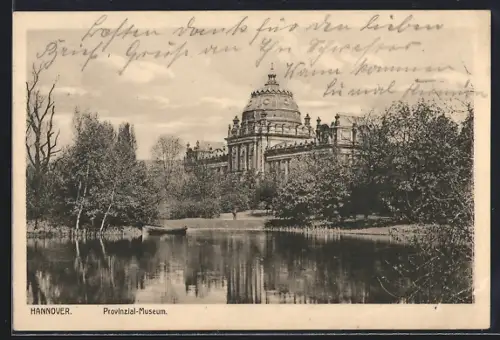 Besten Dank für den lieben
Brief Gruß an Ihre Schwester.
Wann kommen
HANNOVER. Provinzial-Museum.